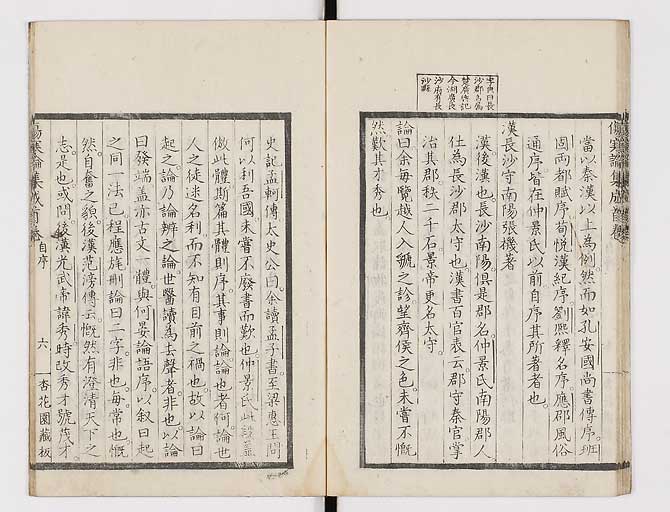 字典曰長
沙郡名屬
楚廣輿記
今湖廣長
沙府有長
沙縣
傷寒論集成首卷
當以秦漢以上為例然而如孔安國尚書傳序班
固兩都賦序荀悅漢紀序劉熙釋名序應邵風俗
通序皆在仲景氏以前自序其所著者也
漢長沙守南陽張機著
漢後漢也長沙南陽俱是郡名仲景氏南陽郡人
仕為長沙郡太守也漢書百官表云郡守秦官掌
治其郡秩二千石景帝更名太守
論曰余每覽越人入虢之診望齊侯之色未嘗不慨
然歎其才秀也
史記孟軻傳太史公曰余讀孟子書至梁惠王問
何以利吾國未嘗不廢書而歎也仲景氏此段蓋
倣此體斯篇其體則序其事則論論也者何論世
人之徒迷名利而不知有目前之禍也故以論曰
起之論乃論辨之論世醫讀為去聲者非也以論
曰發端蓋亦古文一體與何晏論語序以叙曰起
之同一法已程應旄刪論曰二字非也每常也慨
然自奮之貌後漢范滂傳云慨然有澄清天下之
志是也或問後漢光武帝諱秀時改秀才號茂才
傷寒論集成首卷 自序 六 杏花園藏板